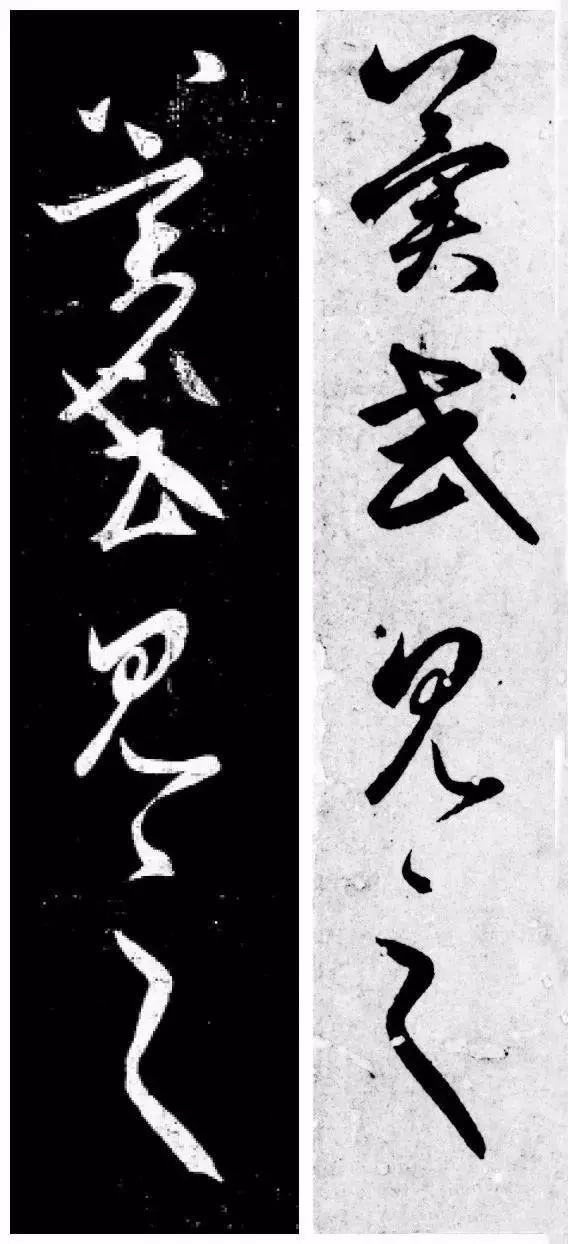 冀或見之
冀或見之